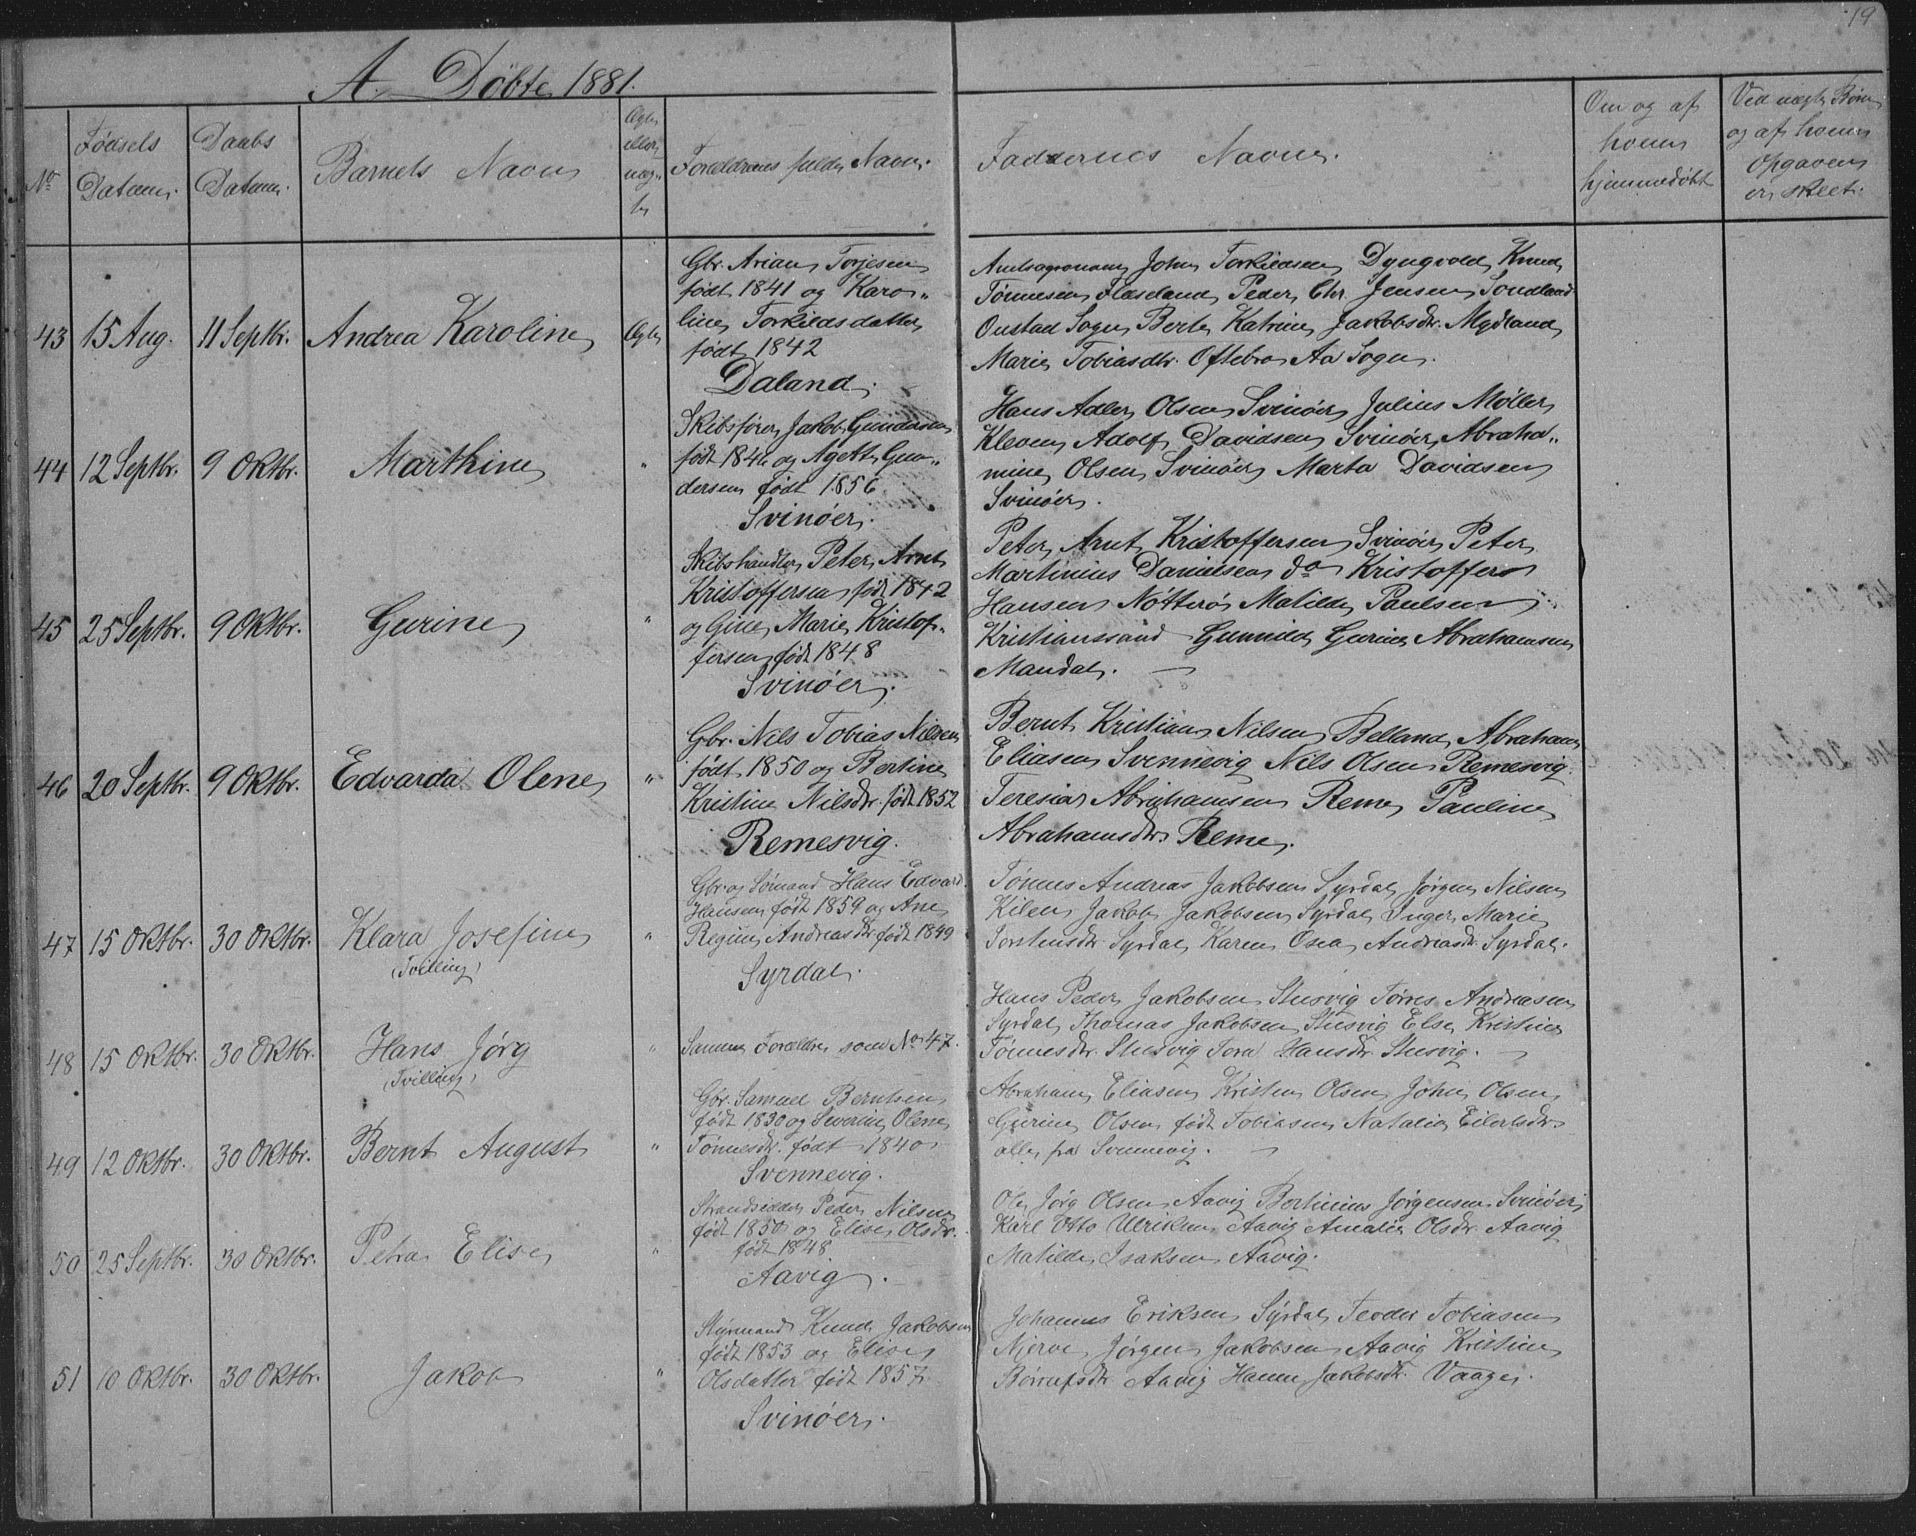 19
A. Döbte 1881.
No
Födsels Datum.
Daabs Datum.
Barnets Navn
Ægte eller uægte
Forældrenes fulde Navn.
Faddernes Navne.
Om og af hvem hjemmedöbt
Ved uægte Börn og af hvem Opgaven er skeet.
43 15 Aug. 11 Septbr. Andrea Karoline Ægte
Gbr. Arian Torjesen
födt 1841 og Karo„
line Torkildsdatter
födt 1842
Daland.
Amtsagronom John Torkildsen Dyngvold, Knud
Tönnesen Fladseland, Peder Chr. Jensen Sondland
Oustad Sogn Berte Katrine Jakobsdtr. Mydland
Marie Tobiasdtr. Oftebro Aa Sogn.
44 12 Septbr. 9 Oktbr. Marthine „
Skibsförer Jakob Gundersen
födt 1846 og Agette Gun„
dersen födt 1856
Svinöer.
Hans Adler Olsen Svinöer, Julius Möller
Kleven, Adolf Davidsen Svinöer, Abraha„
mine Olsen Svinöer Marta Davidsen
Svinöer.
45 25 Septbr. 9 Oktbr. Gurine „
Skibshandler Peter Arnt
Kristoffersen födt 1842
og Gine Marie Kristof„
fersen födt 1848
Svinöer.
Peter Arnt Kristoffersen Svinöer Peter
Martinius Danielsen do Kristoffer
Hansen Nötterö Matilde Paulsen
Kristianssand Gunnild Gurine Abrahamsen
Mandal.
46 20 Septbr. 9 Oktbr. Edvarda Olene „
Gbr. Nils Tobias Nilsen
födt 1850 og Bertine
Kristine Nilsdtr. födt 1852
Remesvig.
Bernt Kristian Nilsen Belland, Abraham
Eliasen Svennevig Nils Olsen Remesvig.
Teresia Abrahamsen Reme, Pauline
Abrahamsdtr Reme.
47 15 Oktbr. 30 Oktbr. Klara Josefine „
(Tvilling)
Gbr. og Sömand Hans Edvard
Hansen födt 1859 og Ane
Regine Andreasdtr födt 1849
Syrdal.
Tönnes Andreas Jakobsen Syrdal, Jörgen Nilsen
Kilen, Jakob Jakobsen Syrdal, Inger Marie
Torstensdtr. Syrdal, Karen Osea Andreasdtr. Syrdal.
48 15 Oktbr. 30 Oktbr. Hans Jörg „
(Tvilling)
Samme Forældre som No 47.
Hans Peder Jakobsen Stusvig Törres Andreasen
Syrdal, Thomas Jakobsen Stusvig Else Kristine
Tönnesdtr. Stusvig Tora Hansdtr. Stusvig.
49 12 Oktbr. 30 Oktbr. Bernt August „
Gbr. Samuel Berntsen
födt 1830 og Severine Olene
Tönnesdtr. födt 1840
Svennevig.
Abraham Eliasen Kristen Olsen, John Olsen
Gurine Olsen födt Tobiasen Natalie Eilertsdtr.
alle fra Svennevig.
50 25 Septbr. 30 Oktbr. Petra Elise „
Strandsidder Peder Nilsen
födt 1850 og Elise Olsdtr.
födt 1848.
Aavig.
Ole Jörg Olsen Aavig Bertinius Jörgensen Svinöer
Karl Otto Ulriksen Aavig Amalie Olsdtr. Aavig
Matilde Isaksen Aavig.
51 10 Oktbr. 30 Oktbr. Jakob „
Styrmand Knud Jakobsen
födt 1853 og Elise
Olsdatter födt 1857
Svinöer.
Johannes Eriksen Syrdal, Teodor Tobiasen
Njerve, Jörgen Jakobsen Aavig Kristine
Börrufsdtr Aavig Hanne Jakobsdtr. Vaage.